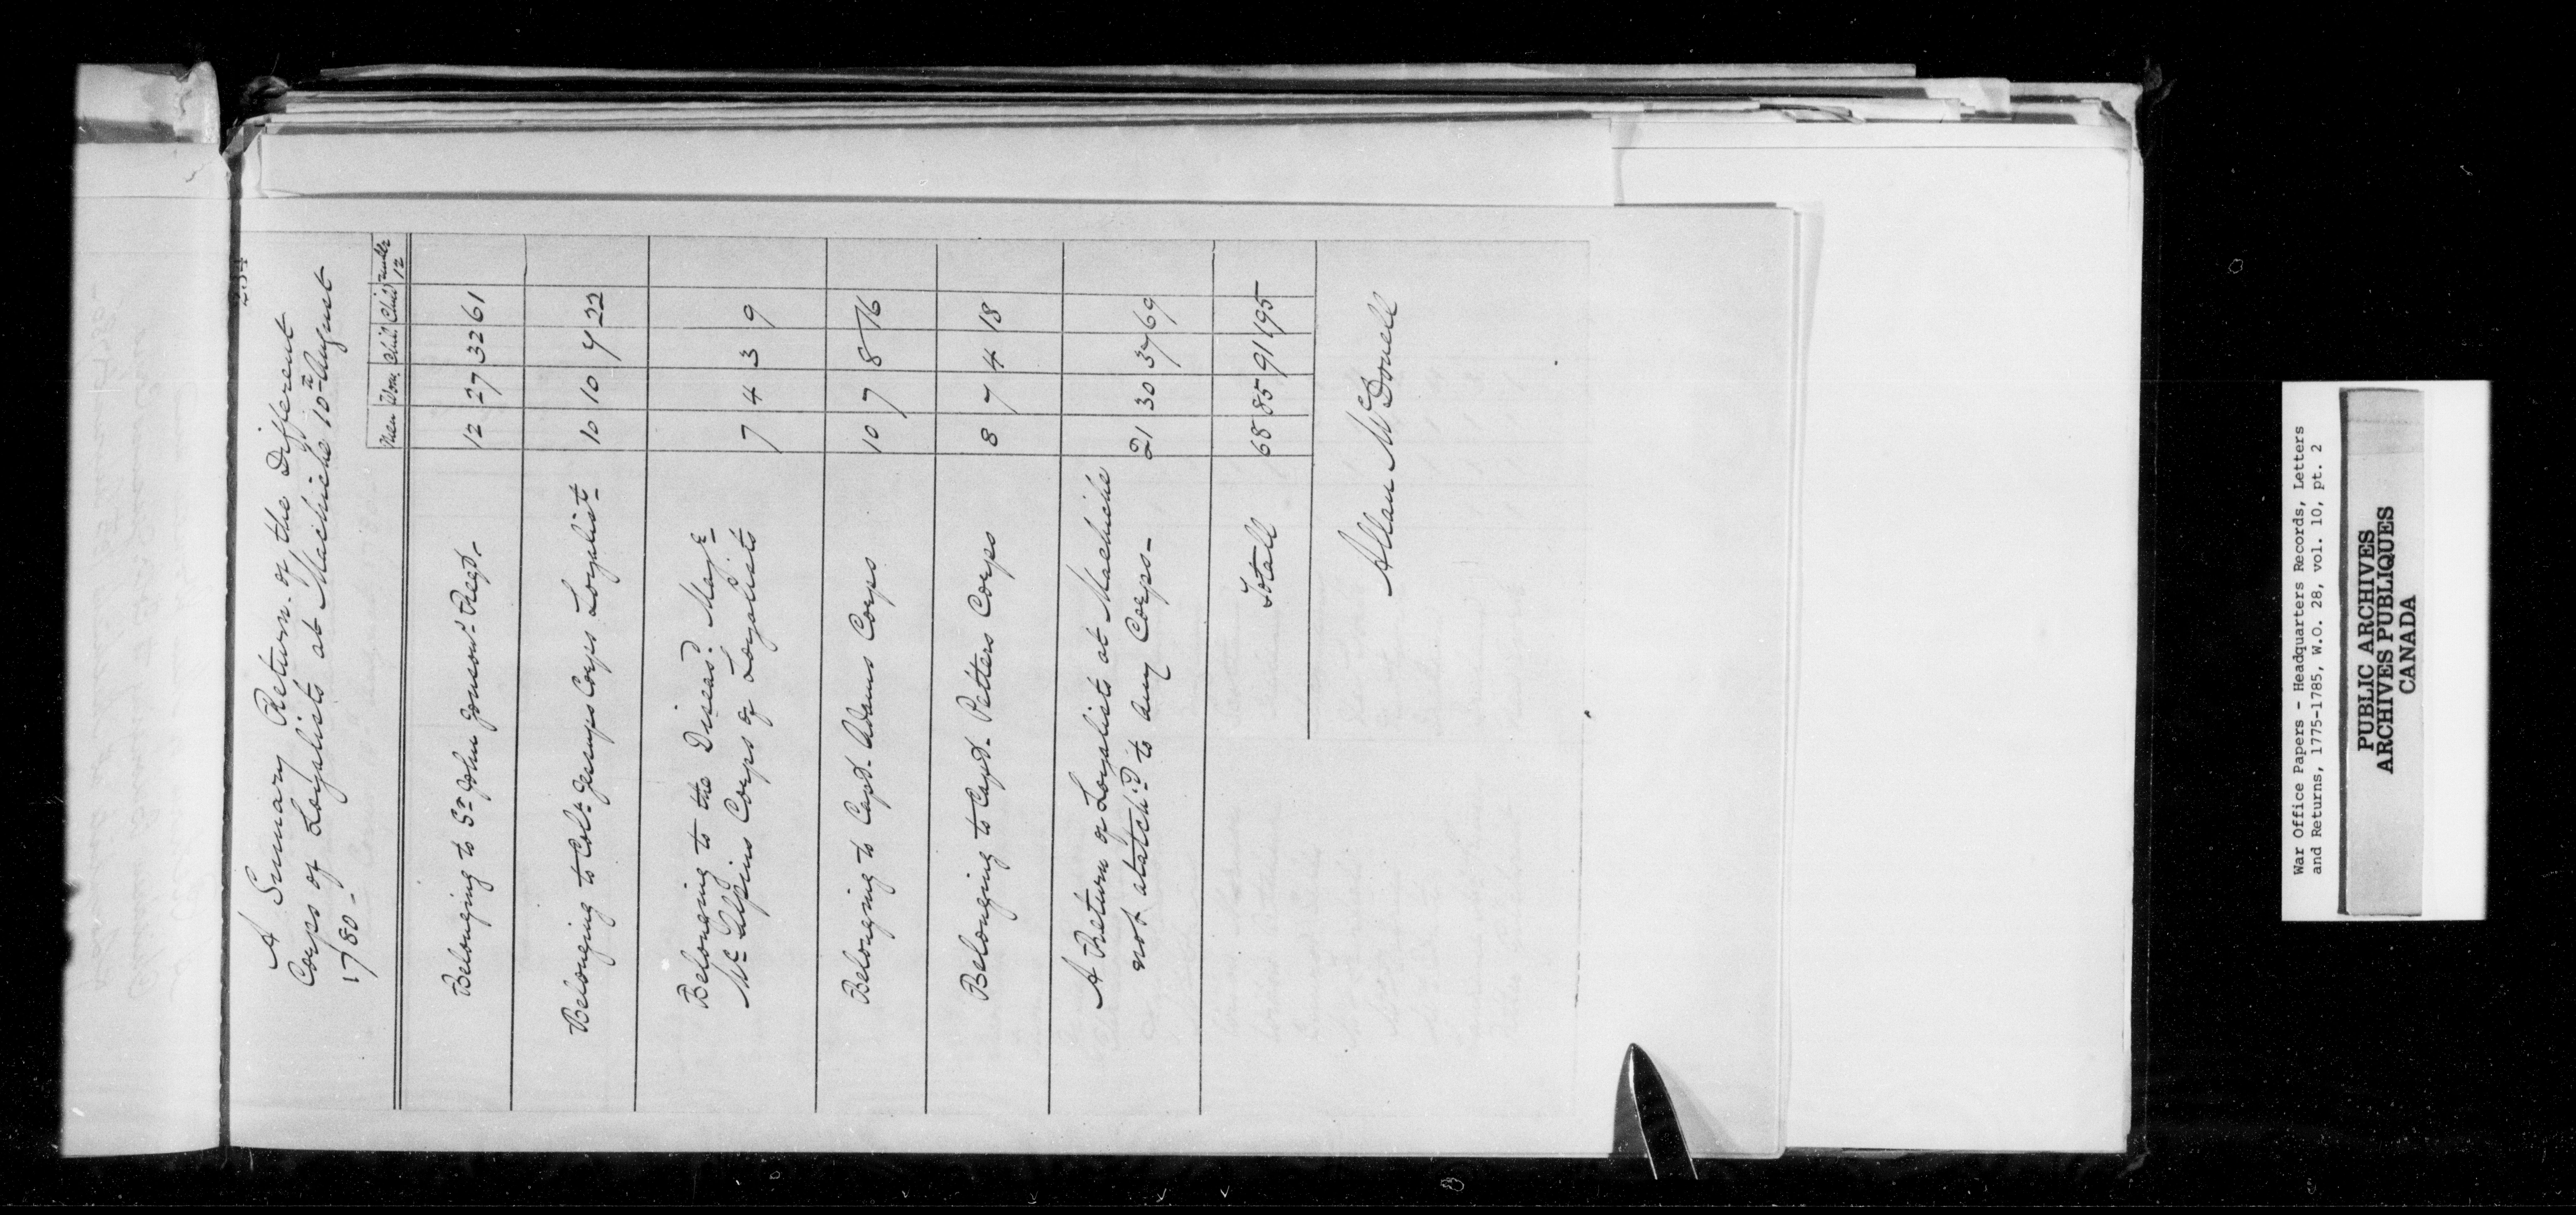 A Summary Return of the Different
Corps of Loyalists at Machiche 10th August
1780 -
Men Wom. Chil. Child under 12
Belonging to Sr John Jonson's Regt. 12 27 32 61
Belonging to Colt Jessups Corps Loyalist 10 10 7 22
Belonging to the Diseasd. Majr
Mc Alpins Corps of Loyalists 7 4 3 9
Belonging to Capt. Adams Corps 10 7 8 16
Belonging to Capt. Petters Corps 8 7 4 18
A Return of Loyalists at Machiche
not atatch'd to any Corps - 21 30 37 69
Totall 68 85 91 195
Allan McDonell
War Office Papers - Headquarters Records, Letters
and Returns, 1775-1785, W.O. 28, vol. 10, pt. 2
PUBLIC ARCHIVES
ARCHIVES PUBLIQUES
CANADA